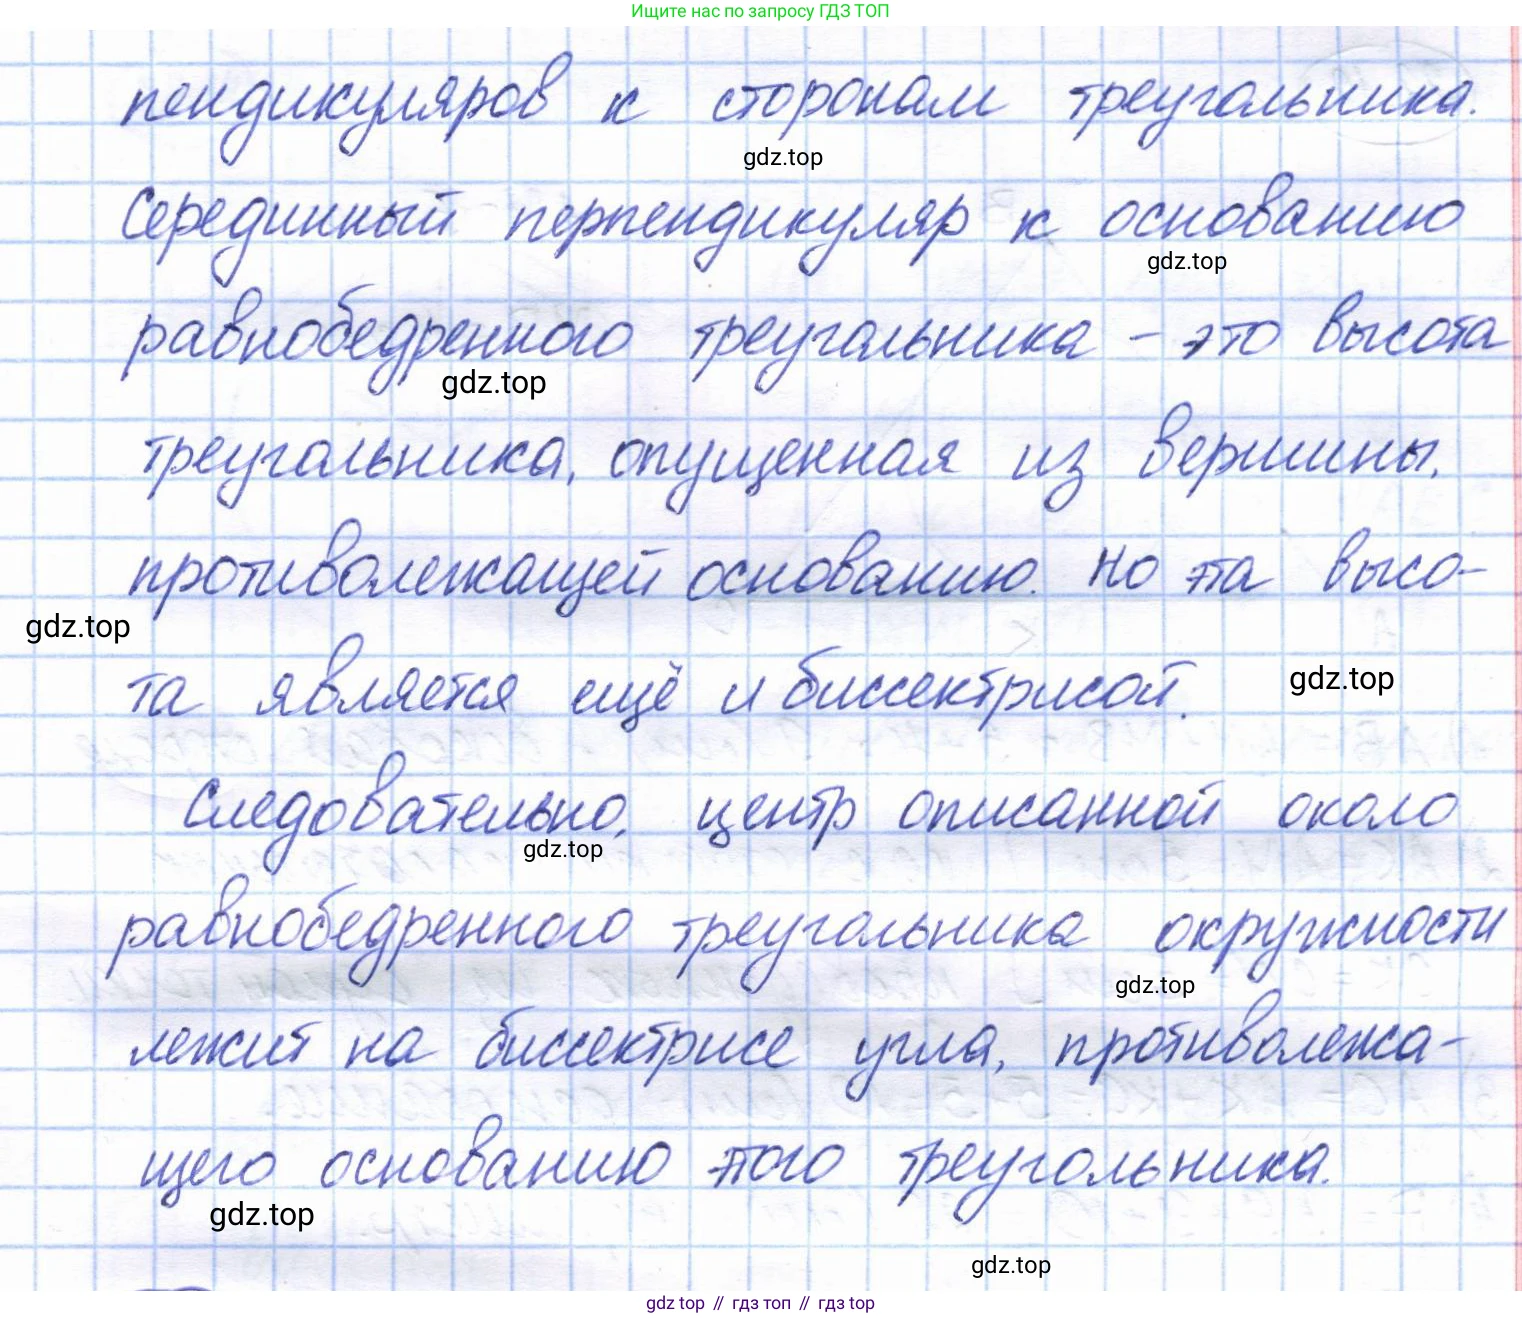 Ищите нас по запросу ГДЗ ТОП
пендикуляров к сторонам треугольника.
gdz.top
Серединный перпендикуляр к основанию
gdz.top
равнобедренного треугольника - это высота
gdz.top
треугольника, опущенная из вершины,
противолежащей основанию. Но эта высо-
gdz.top
та является ещё и биссектрисой.
gdz.top
Следовательно, центр описанной около
gdz.top
равнобедренного треугольника окружности
gdz.top
лежит на биссектрисе угла, противолежа-
щего основанию этого треугольника.
gdz.top
gdz.top
gdz top // гдз топ // гдз top